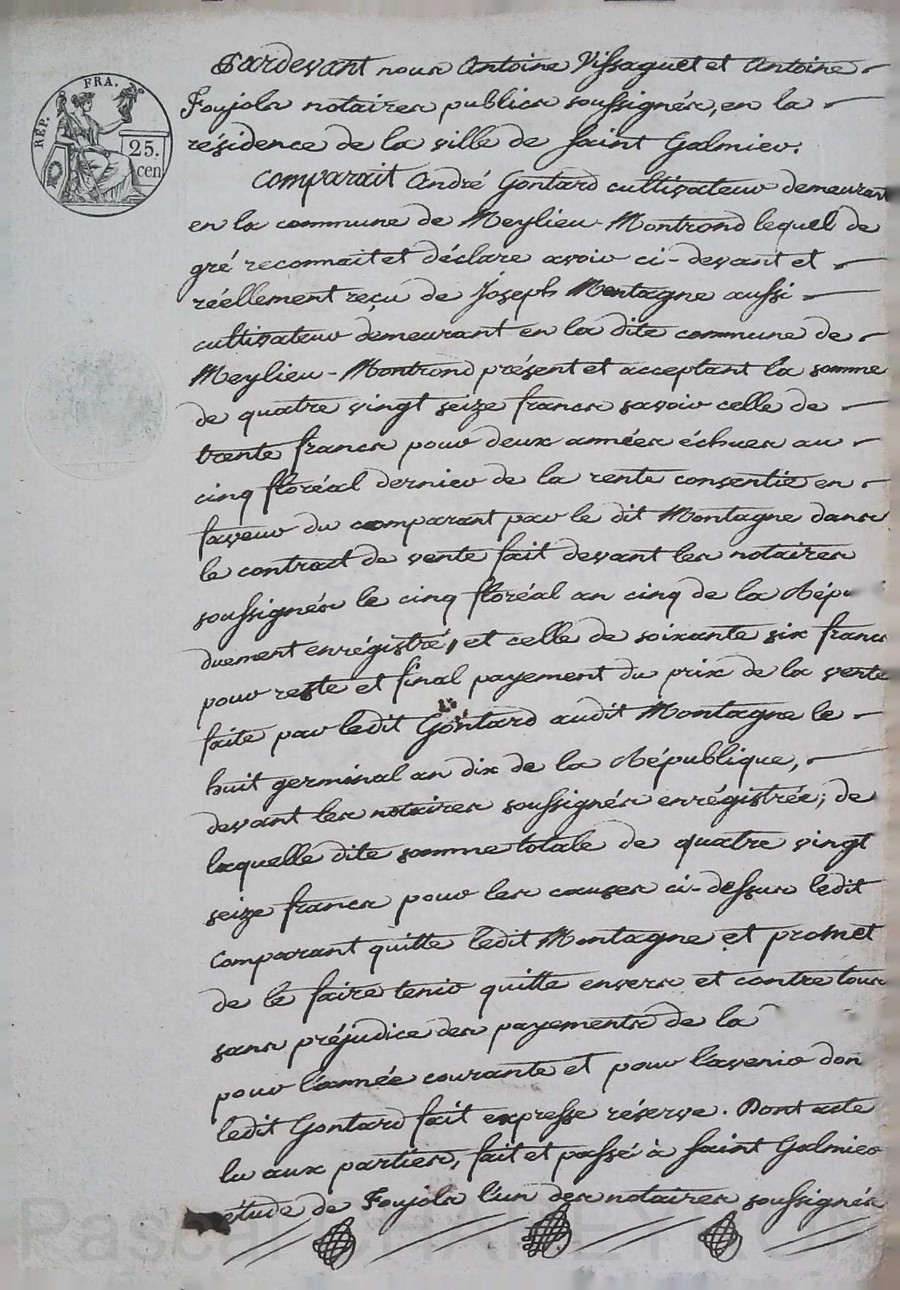 RÉP. FRA.
25.
cen
Pardevant nous Antoine Vissaguet et Antoine
Foujols notaires publics soussignés, en la
résidence de la ville de Saint Galmier.
Comparait André Gontard cultivateur demeurant
en la commune de Meylieu-Montrond lequel de
gré reconnait et déclare avoir ci-devant et
réellement reçu de Joseph Montagne aussi
cultivateur demeurant en la dite commune de
Meylieu-Montrond présent et acceptant la somme
de quatre vingt seize francs savoir celle de
trente francs pour deux années échues au
cinq floréal dernier de la rente consentie en
faveur du comparant par le dit Montagne dans
le contract de vente fait devant les notaires
soussignés le cinq floréal an cinq de la Répu
duement enrégistré, et celle de soixante six francs
pour reste et final payement du prix de la vente
faite par ledit Gontard audit Montagne le
huit germinal an dix de la République,
devant les notaires soussignés enrégistrée; de
laquelle dite somme totale de quatre vingt
seize francs pour les causes ci-dessus ledit
comparant quitte ledit Montagne et promet
de le faire tenir quitte envers et contre tous
sans préjudice des payements de la
pour l'année courante et pour l'avenir don
ledit Gontard fait expresse réserve. Dont acte
lu aux parties, fait et passé à Saint Galmier
étude de Foujols l'un des notaires soussignés